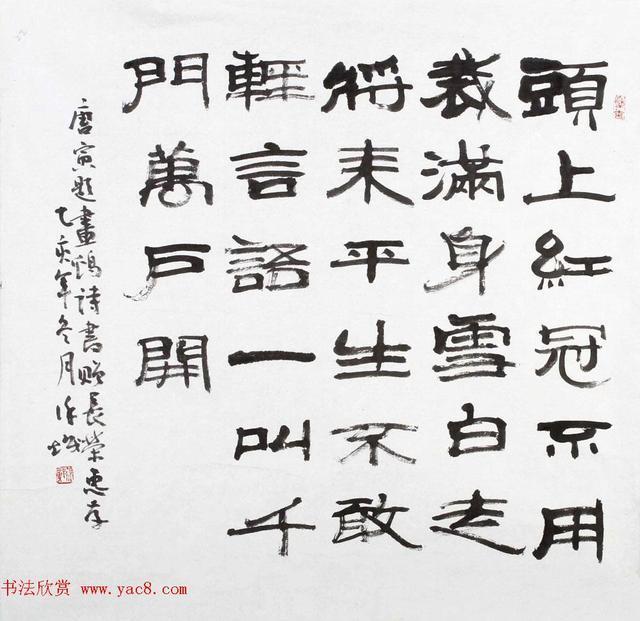 頭上紅冠不用
裁滿身雪白走
將来平生不敢
輕言語一叫千
門萬户開
唐寅题畫鷄詩書贈長榮惠存
乙亥年冬月
书法欣赏 www.yac8.com